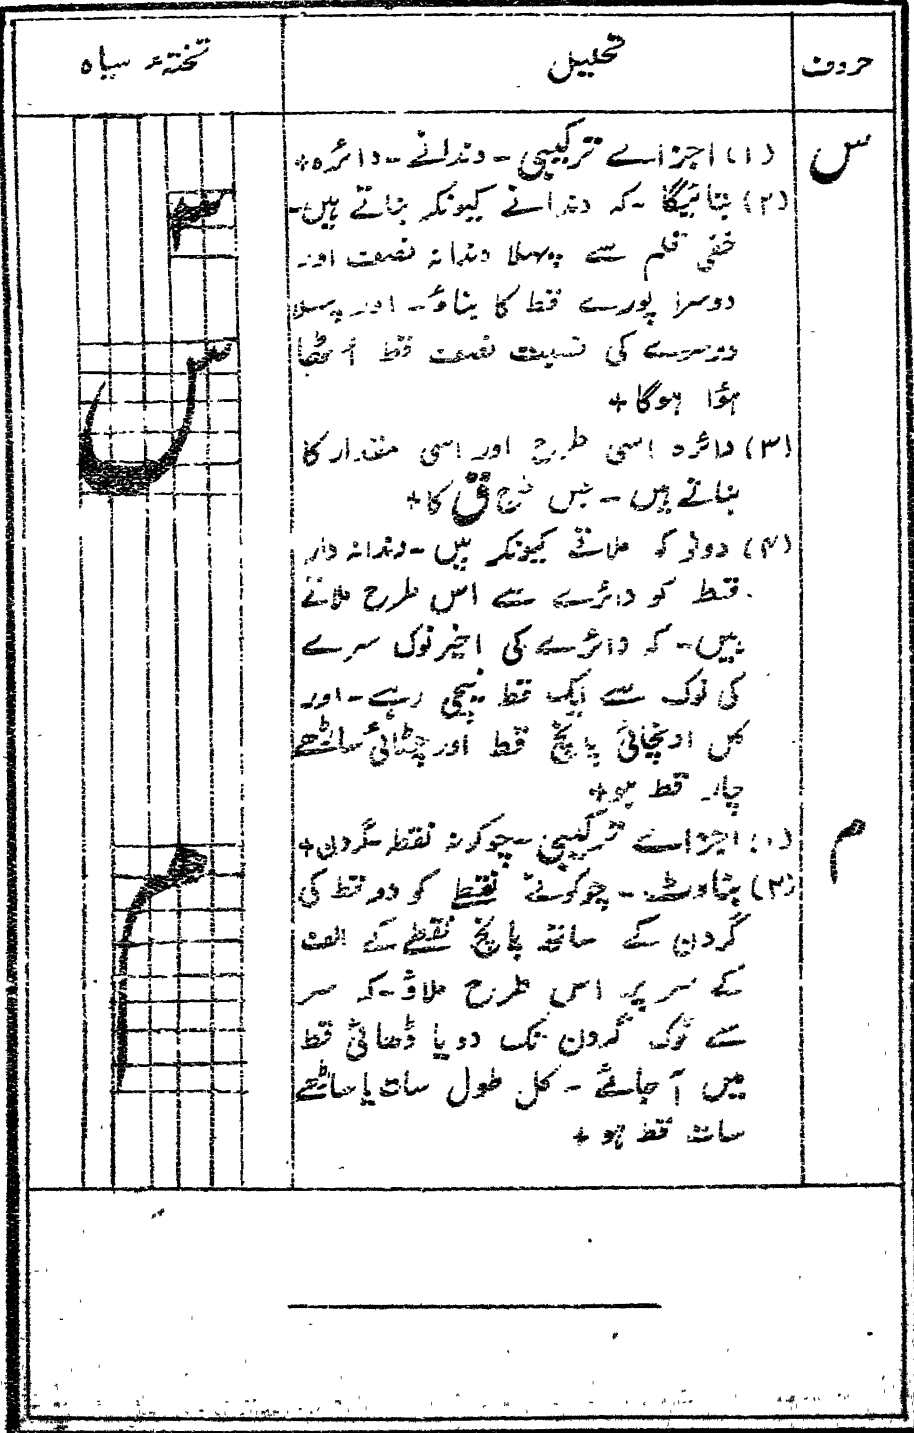 حروف تحلیل تختۂ سیاہ
س
(۱) اجزاے ترکیبی۔ دندانے۔ دائرہ+
(۲) بتائیگا۔ کہ دندانے کیونکر بناتے ہیں۔
خفی قلم سے پہلا دندانہ نصف اور
دوسرا پورے قط کا بناؤ۔ اور پہلا
دوسرے کی نسبت نصف قط اُٹھا
ہؤا ہوگا+
(۳) دائرہ اسی طرح اور اسی مقدار کا
بناتے ہیں۔ جس طرح ق کا+
(۴) دونو کو ملاتے کیونکر ہیں۔ دندانہ دار
قط کو دائرے سے اس طرح ملاتے
ہیں۔ کہ دائرے کی اخیر نوک سرے
کی نوک سے ایک قط نیچی رہے۔ اور
کل اونچائی پانچ قط اور چٹائی ساڑھے
چار قط ہو+
م
(۱) اجزاے ترکیبی۔ چوکونہ نقطہ گردن+
(۲) بناوٹ۔ چوکونے نقطے کو دو قط کی
گردن کے ساتھ پانچ نقطے کے الف
کے سر پر اس طرح ملاؤ۔ کہ سر
سے نوک گردن تک دو یا ڈھائی قط
میں آ جائے۔ کل طول سات یا ساڑھے
سات قط ہو+